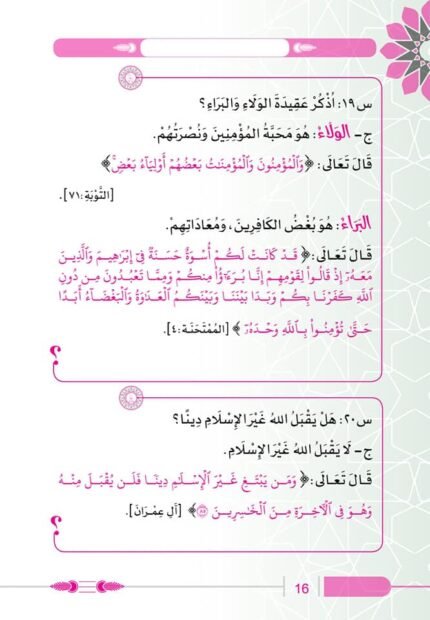 س١٩: اُذْكُرْ عَقِيدَةَ الوَلَاءِ وَالبَرَاءِ؟
ج- الوَلَاءُ: هُوَ مَحَبَّةُ المُؤْمِنِينَ وَنُصْرَتُهُمْ.
قَالَ تَعَالَى: ﴿وَٱلْمُؤْمِنُونَ وَٱلْمُؤْمِنَٰتُ بَعْضُهُمْ أَوْلِيَآءُ بَعْضٍ﴾
[التَّوْبَةِ:٧١].
البَرَاءُ: هُوَ بُغْضُ الكَافِرِينَ، وَمُعَادَاتِهِمْ.
قَالَ تَعَالَى: ﴿قَدْ كَانَتْ لَكُمْ أُسْوَةٌ حَسَنَةٌ فِىٓ إِبْرَٰهِيمَ وَٱلَّذِينَ
مَعَهُۥٓ إِذْ قَالُوا۟ لِقَوْمِهِمْ إِنَّا بُرَءَٰٓؤُا۟ مِنكُمْ وَمِمَّا تَعْبُدُونَ مِن دُونِ
ٱللَّهِ كَفَرْنَا بِكُمْ وَبَدَا بَيْنَنَا وَبَيْنَكُمُ ٱلْعَدَٰوَةُ وَٱلْبَغْضَآءُ أَبَدًا
حَتَّىٰ تُؤْمِنُوا۟ بِٱللَّهِ وَحْدَهُۥٓ﴾ [المُمْتَحَنَة:٤].
؟
س٢٠: هَلْ يَقْبَلُ اللهُ غَيْرَ الإِسْلَامِ دِينًا؟
ج- لَا يَقْبَلُ اللهُ غَيْرَ الإِسْلَامِ.
قَالَ تَعَالَى: ﴿وَمَن يَبْتَغِ غَيْرَ ٱلْإِسْلَٰمِ دِينًا فَلَن يُقْبَلَ مِنْهُ
وَهُوَ فِى ٱلْءَاخِرَةِ مِنَ ٱلْخَٰسِرِينَ ٨٥﴾ [آلِ عِمْرَانَ].
؟
16